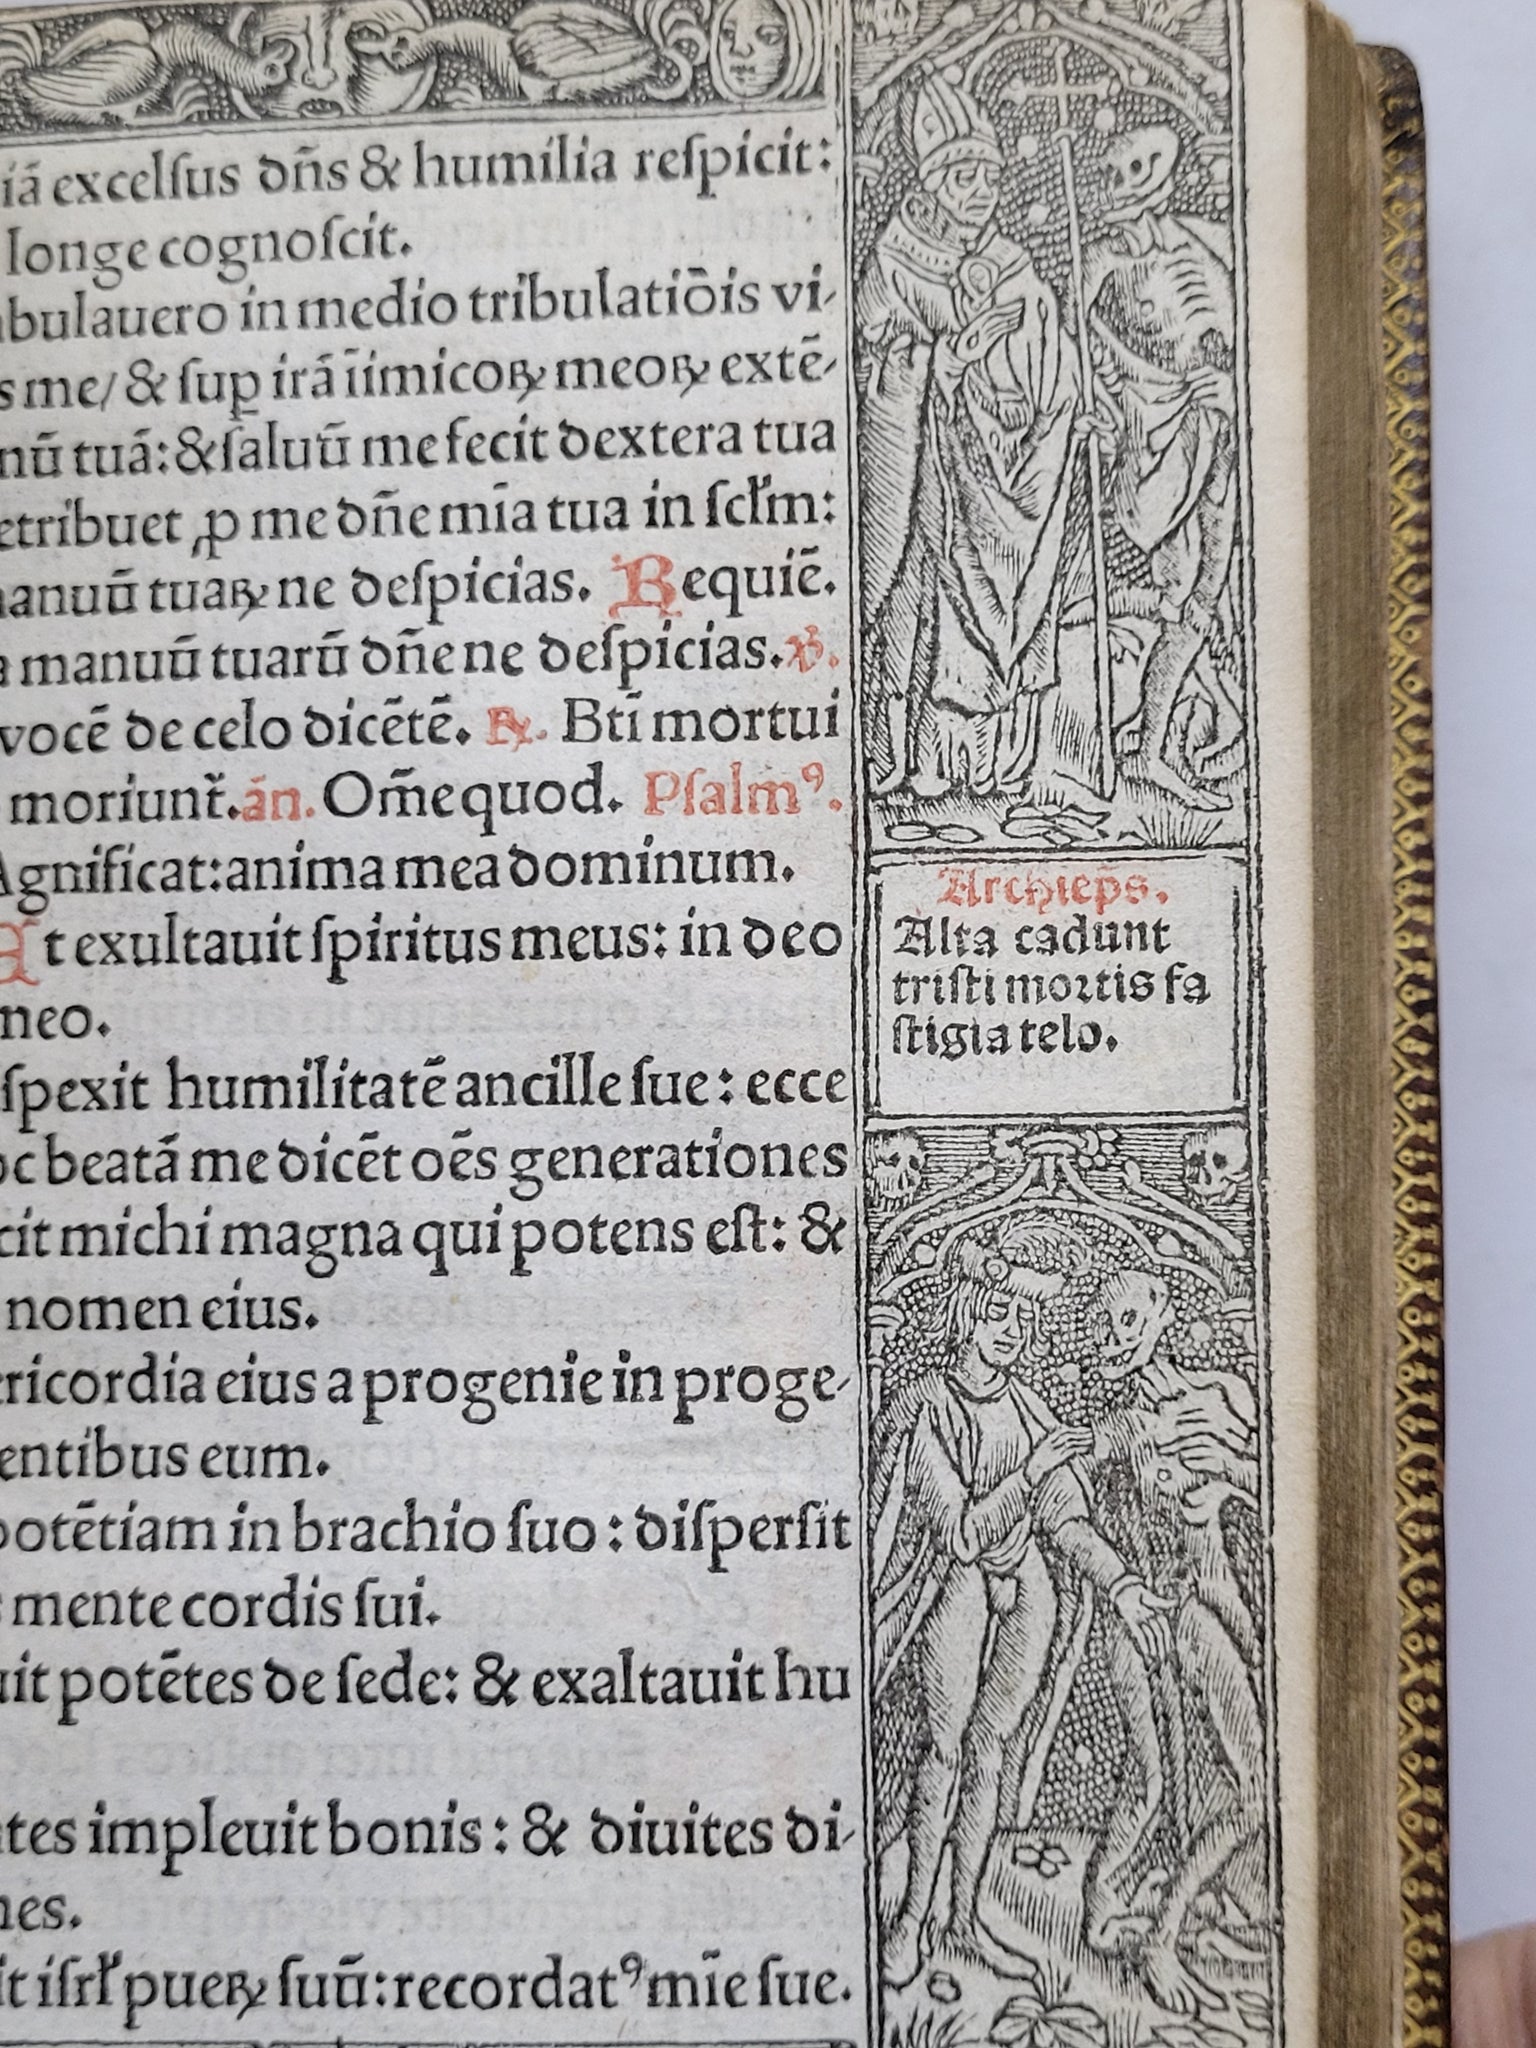 iā excelſus dn̄s & humilia reſpicit:
longe cognoſcit.
bulauero in medio tribulatiōis vi⸗
s me/ & ſuꝑ irā īimicoꝝ meoꝝ extē⸗
nū tuā: & ſaluū me fecit dextera tua
etribuet ꝓ me dn̄e mīa tua in ſcl̓m:
manuū tuaꝝ ne deſpicias. Requiē.
a manuū tuarū dn̄e ne deſpicias. ℣.
vocē de celo dicētē. ℞. Btī mortui
moriunt᷑. ān. Om̄e quod. Pſalmꝰ.
Agnificat: anima mea dominum.
Et exultauit ſpiritus meus: in deo
meo.
ſpexit humilitatē ancille ſue: ecce
oc beatā me dicēt oēs generationes
cit michi magna qui potens eſt: &
nomen eius.
ericordia eius a progenie in proge⸗
entibus eum.
potētiam in brachio ſuo: diſperſit
s mente cordis ſui.
uit potētes de ſede: & exaltauit hu
ntes impleuit bonis: & diuites di⸗
nes.
it iſrl̓ pueꝝ ſuū: recordatꝰ mīe ſue.
Archiep̄s.
Alta cadunt
triſti moꝛtis fa
ſtigia telo.